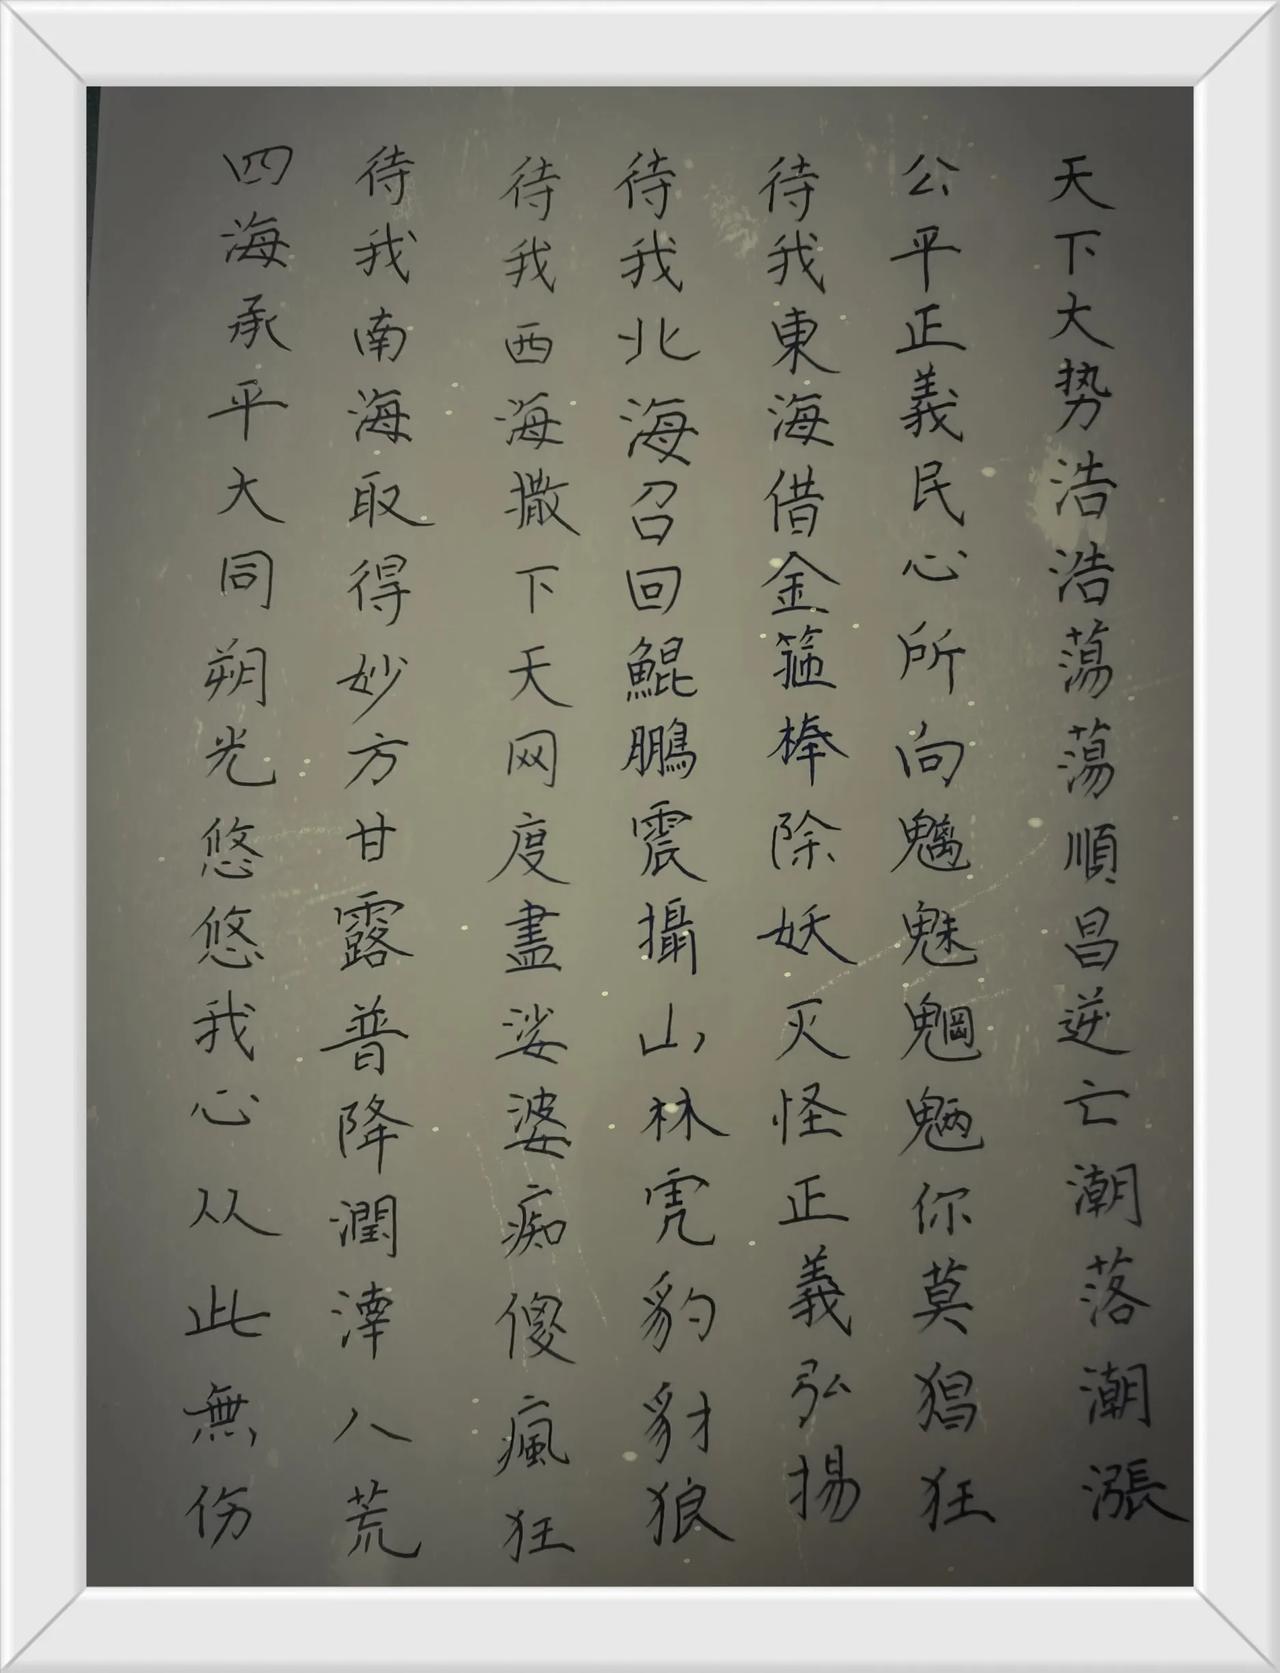 天下大势浩浩蕩蕩順昌逆亡潮落潮漲
公平正義民心所向魑魅魍魎你莫猖狂
待我東海借金箍棒除妖灭怪正義弘揚
待我北海召回鯤鵬震攝山林虎豹豺狼
待我西海撒下天网度盡娑婆痴傻瘋狂
待我南海取得妙方甘露普降潤澤八荒
四海承平大同朔光悠悠我心从此無伤